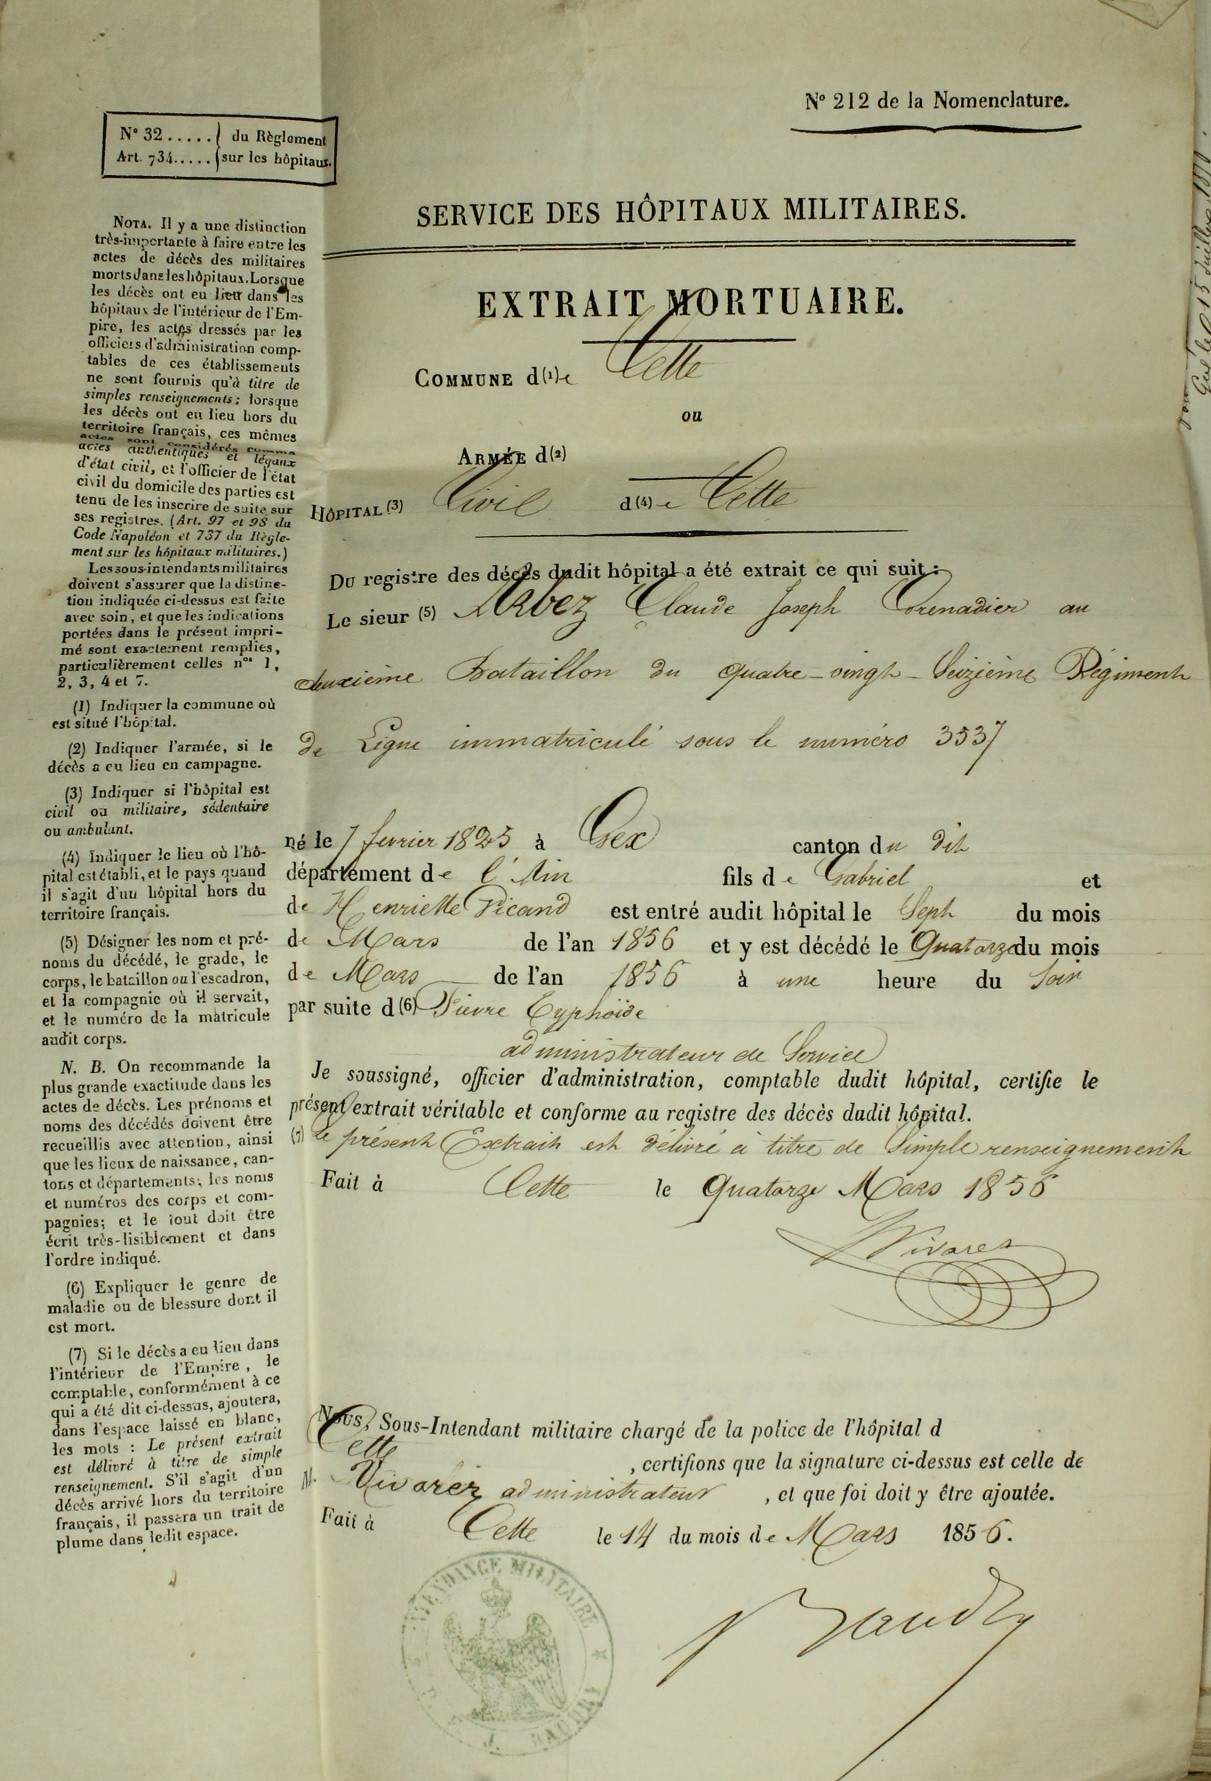 N° 212 de la Nomenclature.
N° 32 ..... du Règlement
Art. 734..... sur les hôpitaux.
SERVICE DES HÔPITAUX MILITAIRES.
EXTRAIT MORTUAIRE.
COMMUNE d(1)e Cette
ou
ARMÉE d(2)
HÔPITAL (3) Civil d(4)e Cette
Du registre des décès dudit hôpital a été extrait ce qui suit :
Le sieur (5) Arbez Claude Joseph Grenadier au
deuxième Bataillon du quatre-vingt-Seizième Régiment
de Ligne immatriculé sous le numéro 3537
né le 7 fevrier 1825 à Gex canton du dit
département de l'Ain fils de Gabriel et
de Henriette Picand est entré audit hôpital le Sept du mois
de Mars de l'an 1856 et y est décédé le Quatorze du mois
de Mars de l'an 1856 à une heure du Soir
par suite d(6) Fievre Typhoïde
administrateur de Service
Je soussigné, officier d'administration, comptable dudit hôpital, certifie le
présent extrait véritable et conforme au registre des décès dudit hôpital.
(7) Le présent Extrait est délivré à titre de Simple renseignement
Fait à Cette le Quatorze Mars 1856
Vivarez
Nous, Sous-Intendant militaire chargé de la police de l'hôpital d
Cette , certifions que la signature ci-dessus est celle de
M. Vivarez administrateur , et que foi doit y être ajoutée.
Fait à Cette le 14 du mois de Mars 1856.
Baudry
INTENDANCE MILITAIRE
J. BAUDRY
NOTA. Il y a une distinction
très-importante à faire entre les
actes de décès des militaires
morts dans les hôpitaux. Lorsque
les décès ont eu lieu dans les
hôpitaux de l'intérieur de l'Em-
pire, les actes dressés par les
officiers d'administration comp-
tables de ces établissements
ne sont fournis qu'à titre de
simples renseignements; lorsque
les décès ont eu lieu hors du
territoire français, ces mêmes
actes sont considérés comme
actes authentiques et légaux
d'état civil, et l'officier de l'état
civil du domicile des parties est
tenu de les inscrire de suite sur
ses registres. (Art. 97 et 98 du
Code Napoléon et 737 du Règle-
ment sur les hôpitaux militaires.)
Les sous-intendants militaires
doivent s'assurer que la distinc-
tion indiquée ci-dessus est faite
avec soin, et que les indications
portées dans le présent impri-
mé sont exactement remplies,
particulièrement celles nos 1,
2, 3, 4 et 7.
(1) Indiquer la commune où
est situé l'hôpital.
(2) Indiquer l'armée, si le
décès a eu lieu en campagne.
(3) Indiquer si l'hôpital est
civil ou militaire, sédentaire
ou ambulant.
(4) Indiquer le lieu où l'hô-
pital est établi, et le pays quand
il s'agit d'un hôpital hors du
territoire français.
(5) Désigner les nom et pré-
noms du décédé, le grade, le
corps, le bataillon ou l'escadron,
et la compagnie où il servait,
et le numéro de la matricule
audit corps.
N. B. On recommande la
plus grande exactitude dans les
actes de décès. Les prénoms et
noms des décédés doivent être
recueillis avec attention, ainsi
que les lieux de naissance, can-
tons et départements; les noms
et numéros des corps et com-
pagnies; et le tout doit être
écrit très-lisiblement et dans
l'ordre indiqué.
(6) Expliquer le genre de
maladie ou de blessure dont il
est mort.
(7) Si le décès a eu lieu dans
l'intérieur de l'Empire, le
comptable, conformément à ce
qui a été dit ci-dessus, ajoutera,
dans l'espace laissé en blanc,
les mots : Le présent extrait
est délivré à titre de simple
renseignement. S'il s'agit d'un
décès arrivé hors du territoire
français, il passera un trait de
plume dans ledit espace.